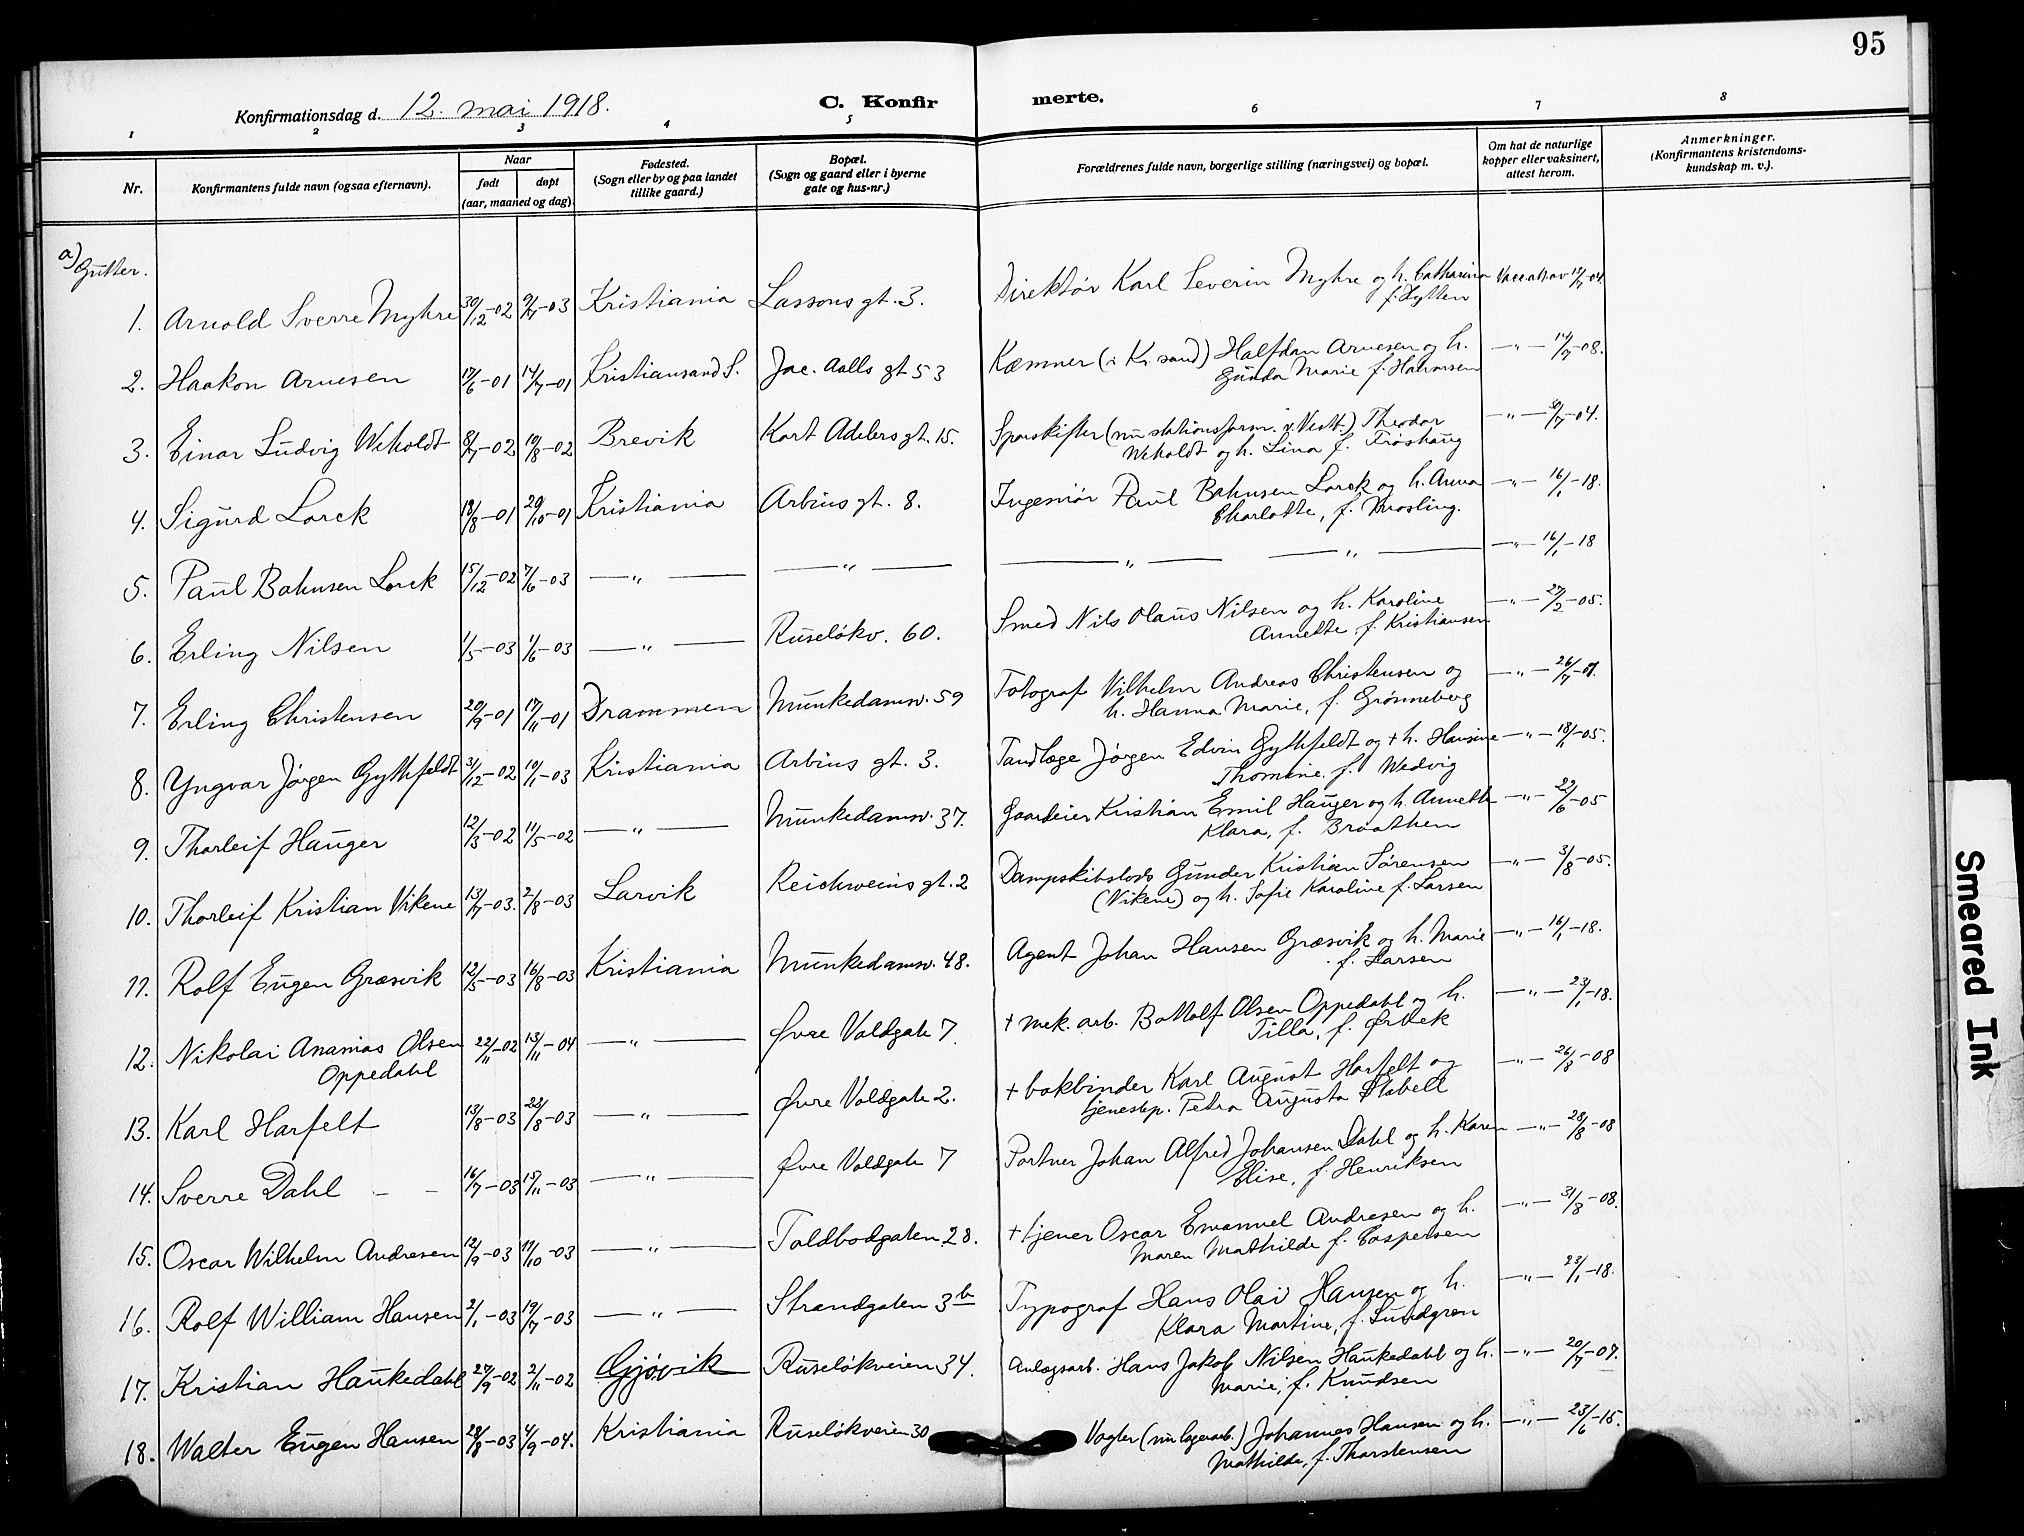 95
Konfirmationsdag d. 12. mai 1918.
C. Konfirmerte.
1 2 3 4 5 6 7 8
Nr.
Konfirmantens fulde navn (ogsaa efternavn).
Naar
født
døpt
(aar, maaned og dag)
Fødested.
(Sogn eller by og paa landet
tillike gaard.)
Bopæl.
(Sogn og gaard eller i byerne
gate og hus-nr.)
Forældrenes fulde navn, borgerlige stilling (næringsvei) og bopæl.
Om hat de naturlige
kopper eller vaksinert,
attest herom.
Anmerkninger.
(Konfirmantens kristendoms-
kundskap m. v.).
a) Gutter.
1. Arnold Sverre Myhre 30/12-02 9/4-03 Kristiania Lassons gt. 3. Direktør Karl Severin Myhre og h. Catharina
f. Hytten
2. Haakon Arnesen 17/6-01 14/7-01 Kristiansand S. Jac. Aalls gt 53 Kæmner (i Kr.sand) Halfdan Arnesen og h. -"- 14/7-08.
Gunda Marie f. Halvorsen
3. Einar Ludvig Weholdt 8/7-02 10/8-02 Brevik Kort Adelers gt. 15. Sporskifter (nu stationsform. v. Vestb.) Theodor -"- 30/7-04.
Weholdt og h. Lina f. Frøshaug
4. Sigurd Lorck 18/8-01 20/10-01 Kristiania Arbins gt. 8. Ingeniør Paul Bahnsen Lorck og h. Anna -"- 16/1-18.
Charlotte, f. Mosling.
5. Paul Bahnsen Lorck 15/12-02 7/6-03 -"- -"- -"- -"- -"- 16/1-18
6. Erling Nilsen 1/5-03 1/6-03 -"- Ruseløkv. 60. Smed Nils Olaus Nilsen og h. Karoline -"- 27/2-05.
Annette f. Kristiansen
7. Erling Christensen 20/9-01 17/11-01 Drammen Munkedamsv. 59 Fotograf Vilhelm Andreas Christensen og -"-
h. Hanna Marie, f. Grønneberg
8. Yngvar Jørgen Gythfeldt 31/12-02 10/1-03 Kristiania Arbins gt. 3. Tandlæge Jørgen Edvin Gythfeldt og + h. Hansine -"- 18/11-05.
Thomine f. Wedvig
9. Thorleif Hauger 12/3-02 11/5-02 -"- Munkedamsv. 37. Gaardeier Kristian Emil Hauger og h. Annette -"- 22/6-05
Klara, f. Braathen
10. Thorleif Kristian Vikene 13/7-03. 2/8-03 Larvik Reichweins gt. 2 Dampskibslods Gunder Kristian Sørensen -"- 3/8-05.
(Vikene) og h. Sofie Karoline f. Larsen
11. Rolf Eugen Græsvik 12/5-03 16/8-03 Kristiania Munkedamsv. 48. Agent Johan Hansen Græsvik og h. Marie -"- 16/1-18.
f. Larsen
12. Nikolai Ananias Olsen 22/11-02 13/11-04 -"- Øvre Voldgate 7. + mek. arb. Bottolf Olsen Oppedahl og h. -"- 23/1-18.
Oppedahl Tilla, f.
13. Karl Harfelt 13/8-03 23/8-03 -"- Øvre Voldgate 2. + bokbinder Karl August Harfelt og -"- 26/8-08
tjenestep. Petra Augusta Stabell
14. Sverre Dahl - - 16/7-03 15/11-03 -"- Øvre Voldgate 7 Portner Johan Alfred Johansen Dahl og h. Karen -"- 28/8-08
Elise, f. Henriksen
15. Oscar Wilhelm Andresen 12/9-03 17/10-03 -"- Toldbodgaten 28. + tjener Oscar Emanuel Andresen og h. -"- 31/8-08.
Maren Mathilde f. Caspersen
16. Rolf William Hansen 2/1-03 19/7-03 -"- Strandgaten 3b Typograf Hans Olai Hansen og h. -"- 23/1-18.
Klara Martine, f. Lundgren
17. Kristian Haukedahl 27/9-02 2/11-02 Gjøvik Ruseløkveien 34. Anlægsarb. Hans Jakob Nilsen Haukedahl og h. -"- 20/7-07.
Marie, f. Knudsen
18. Walter Eugen Hansen 28/8-03 4/9-04. Kristiania Ruseløkveien 30 Vogter (nu lagerarb.) Johannes Hansen og h. -"- 23/6-15.
Mathilde, f. Thorstensen
Smeared Ink